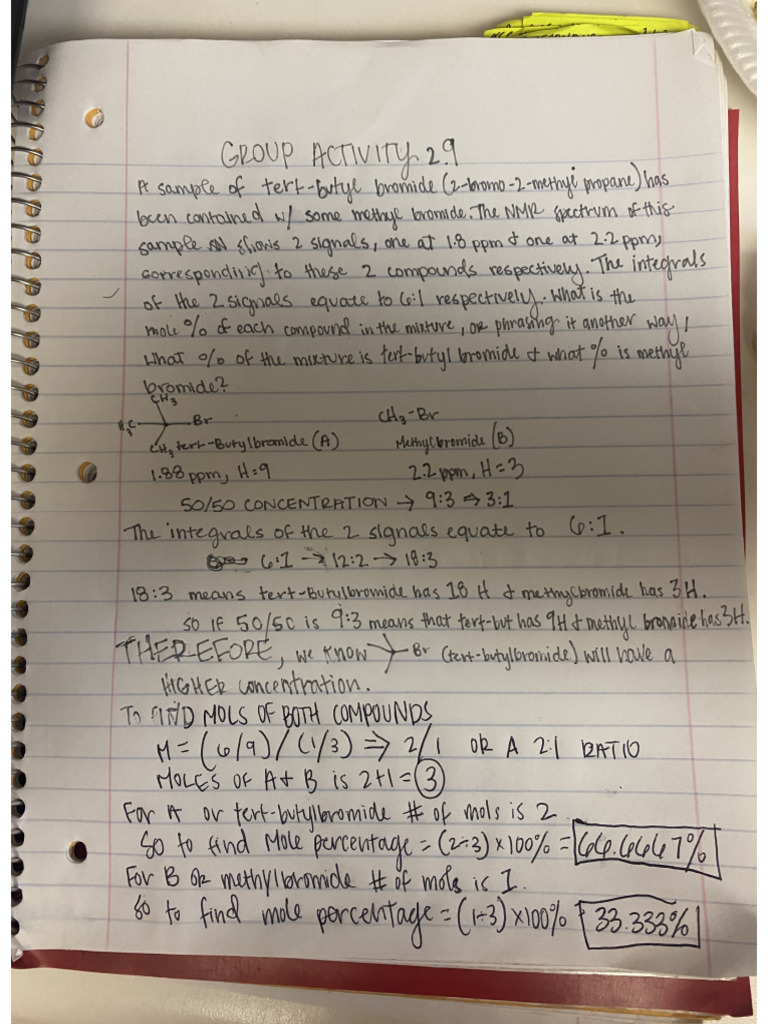 GROUP ACTIVITY 2.9
A sample of tert-butyl bromide (2-bromo-2-methyl propane) has
been contained w/ some methyl bromide. The NMR spectrum of this
sample shows 2 signals, one at 1.8 ppm & one at 2.2 ppm,
corresponding to these 2 compounds respectively. The integrals
of the 2 signals equate to 6:1 respectively. What is the
mole % of each compound in the mixture, or phrasing it another way,
what % of the mixture is tert-butyl bromide & what % is methyl
bromide?
CH3
H3C Br CH3-Br
CH3 tert-Butylbromide (A) Methylbromide (B)
1.88 ppm, H=9 2.2 ppm, H=3
50/50 CONCENTRATION → 9:3 ⇒ 3:1
The integrals of the 2 signals equate to 6:1.
6:1 → 12:2 → 18:3
18:3 means tert-Butylbromide has 18 H & methylbromide has 3H.
so if 50/50 is 9:3 means that tert-but has 9H & methyl bromide has 3H.
THEREFORE, we know Br (tert-butylbromide) will have a
HIGHER concentration.
TO FIND MOLS OF BOTH COMPOUNDS
M = (6/9) / (1/3) ⇒ 2/1 OR A 2:1 RATIO
MOLES OF A + B is 2+1 = 3
For A or tert-butylbromide # of mols is 2
So to find Mole percentage = (2÷3) × 100% = 66.6667%
For B or methylbromide # of mols is 1.
So to find mole percentage = (1÷3) × 100% = 33.333%